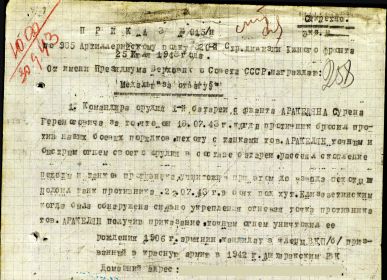 Секретно.
Экз. №
ПРИКАЗ № 015/Н
по 985 Артиллерийскому полку 320-й Стр.дивизии Южного фронта
25 июля 1943 года
От имени Президиума Верховного Совета СССР, награждаю:
Медалью "за отвагу"
258
1. Командира орудия 1-й батареи, ефрейтора АРАКЕЛЯНА Сурена
за то, что он 18.07.43 г. когда противник бросил про-
тив наших боевых порядков пехоту с танками тов. АРАКЕЛЯН, точным и
быстрым огнем своего орудия в составе батареи, рассеял скопление
пехоты и танков противника, при этом до взвода пехоты
танк противника. 22.07.43 г. в бою под хут. Елизаветинским
когда была обнаружена сильно укрепленная огневая точка противника
тов. АРАКЕЛЯН получив приказание, точным огнем уничтожил ее
рождения 1906 г. армянин кандидат в члены ВКП/б/ при-
званный в красную армию в 1942 г. РВК
Домашний адрес: